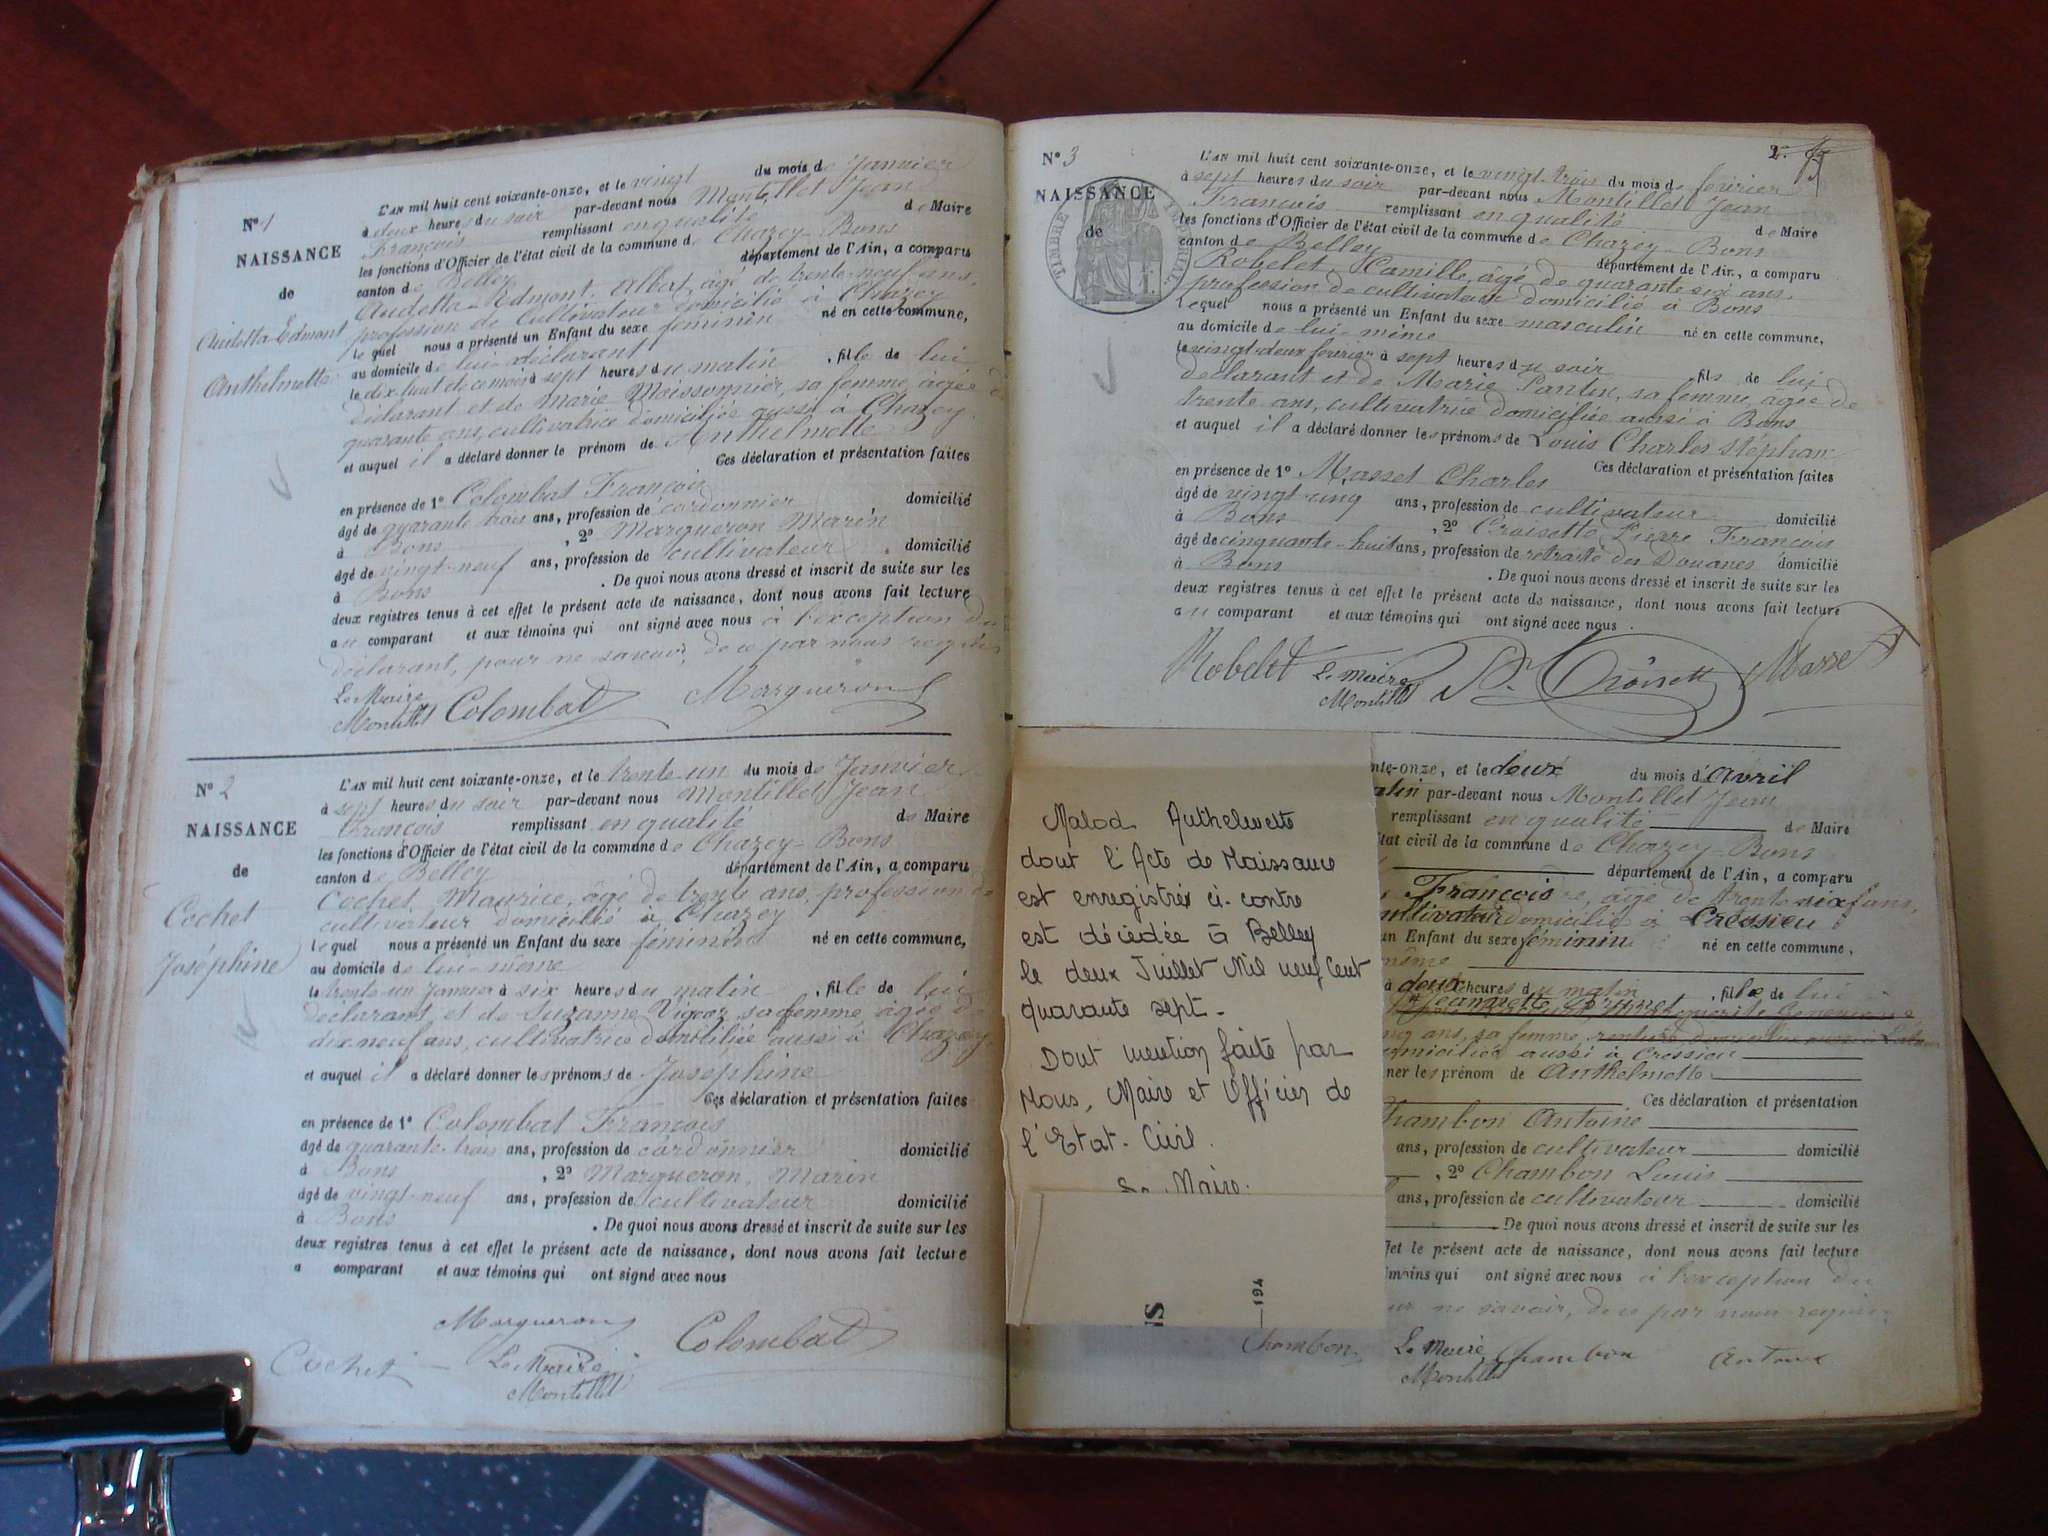 N° 1
NAISSANCE
de
Audetta-Edmont
Anthelmette
L'AN mil huit cent soixante-onze, et le vingt du mois de Janvier
à deux heures du soir par-devant nous Montillet Jean
François remplissant en qualité de Maire
les fonctions d'Officier de l'état civil de la commune de Chazey-Bons
canton de Belley département de l'Ain, a comparu
Audetta-Edmont Albat, âgé de trente-neuf ans,
profession de cultivateur domicilié à Chazey
lequel nous a présenté un Enfant du sexe féminin né en cette commune,
au domicile de lui déclarant
le dix huit de ce mois à sept heures du matin, fille de lui
déclarant et de Marie Moissonnier, sa femme, âgée de
quarante ans, cultivatrice domiciliée aussi à Chazey
et auquel il a déclaré donner le prénom de Anthelmette
Ces déclaration et présentation faites
en présence de 1° Colombat François
âgé de quarante trois ans, profession de cordonnier domicilié
à Bons, 2° Margueron Marin
âgé de vingt-neuf ans, profession de cultivateur, domicilié
à Bons. De quoi nous avons dressé et inscrit de suite sur les
deux registres tenus à cet effet le présent acte de naissance, dont nous avons fait lecture
au comparant et aux témoins qui ont signé avec nous à l'exception du
déclarant, pour ne savoir, de ce par nous requis
Le Maire
Montillet Colombat Margueron
N° 2
NAISSANCE
de
Cochet
Joséphine
L'AN mil huit cent soixante-onze, et le trente-un du mois de Janvier
à sept heures du soir par-devant nous Montillet Jean
François remplissant en qualité de Maire
les fonctions d'Officier de l'état civil de la commune de Chazey-Bons
canton de Belley département de l'Ain, a comparu
Cochet Maurice, âgé de trente ans, profession de
cultivateur domicilié à Chazey
lequel nous a présenté un Enfant du sexe féminin né en cette commune,
au domicile de lui-même
le trente un Janvier à six heures du matin, fille de lui
déclarant et de Suzanne sa femme âgée de
dix neuf ans, cultivatrice domiciliée aussi à Chazey
et auquel il a déclaré donner les prénoms de Joséphine
Ces déclaration et présentation faites
en présence de 1° Colombat François
âgé de quarante-trois ans, profession de cordonnier domicilié
à Bons, 2° Margueron, Marin
âgé de vingt-neuf ans, profession de cultivateur domicilié
à Bons. De quoi nous avons dressé et inscrit de suite sur les
deux registres tenus à cet effet le présent acte de naissance, dont nous avons fait lecture
a comparant et aux témoins qui ont signé avec nous
Margueron
Cochet Le Maire Colombat
Montillet
2
N° 3
NAISSANCE
de
TIMBRE
L'AN mil huit cent soixante-onze, et le vingt-trois du mois de février
à sept heures du soir par-devant nous Montillet Jean
François remplissant en qualité de Maire
les fonctions d'Officier de l'état civil de la commune de Chazey-Bons
canton de Belley département de l'Ain, a comparu
Robelet Camille, âgé de quarante six ans,
profession de cultivateur domicilié à Bons
Lequel nous a présenté un Enfant du sexe masculin né en cette commune,
au domicile de lui-même
le vingt-deux février à sept heures du soir, fils de lui
déclarant et de Marie Pantin, sa femme, âgée de
trente ans, cultivatrice domiciliée aussi à Bons
et auquel il a déclaré donner les prénoms de Louis Charles Stéphan
Ces déclaration et présentation faites
en présence de 1° Masset Charles
âgé de vingt-cinq ans, profession de cultivateur domicilié
à Bons, 2° Croisette Pierre François
âgé de cinquante-huit ans, profession de retraité des Douanes domicilié
à Bons. De quoi nous avons dressé et inscrit de suite sur les
deux registres tenus à cet effet le présent acte de naissance, dont nous avons fait lecture
au comparant et aux témoins qui ont signé avec nous.
Robelet Le Maire Masset
Montillet
Malod Anthelmette
dont l'Acte de Naissance
est enregistrée ci-contre
est décédée à Belley
le deux Juillet Mil neuf Cent
quarante sept.
Dont mention faite par
Nous, Maire et Officier de
l'Etat-Civil.
Le Maire.
194
nte-onze, et le deux du mois d'avril
atin par-devant nous Montillet Jean
remplissant en qualité de Maire
tat civil de la commune de Chazey-Bons
département de l'Ain, a comparu
François âgé de trente six ans,
cultivateur domicilié à Cressieu
un Enfant du sexe féminin né en cette commune,
même
à deux heures du matin, fille de lui
Jeannette Brunet
ans, sa femme
domiciliée aussi à Cressieu
ner les prénom de Anthelmette
Ces déclaration et présentation
Chambon Antoine
ans, profession de cultivateur domicilié
, 2° Chambon Louis
ans, profession de cultivateur domicilié
De quoi nous avons dressé et inscrit de suite sur les
ffet le présent acte de naissance, dont nous avons fait lecture
émoins qui ont signé avec nous à l'exception du
ur ne savoir, de ce par nous requis
Chambon Le Maire Chambon Antoine
Montillet